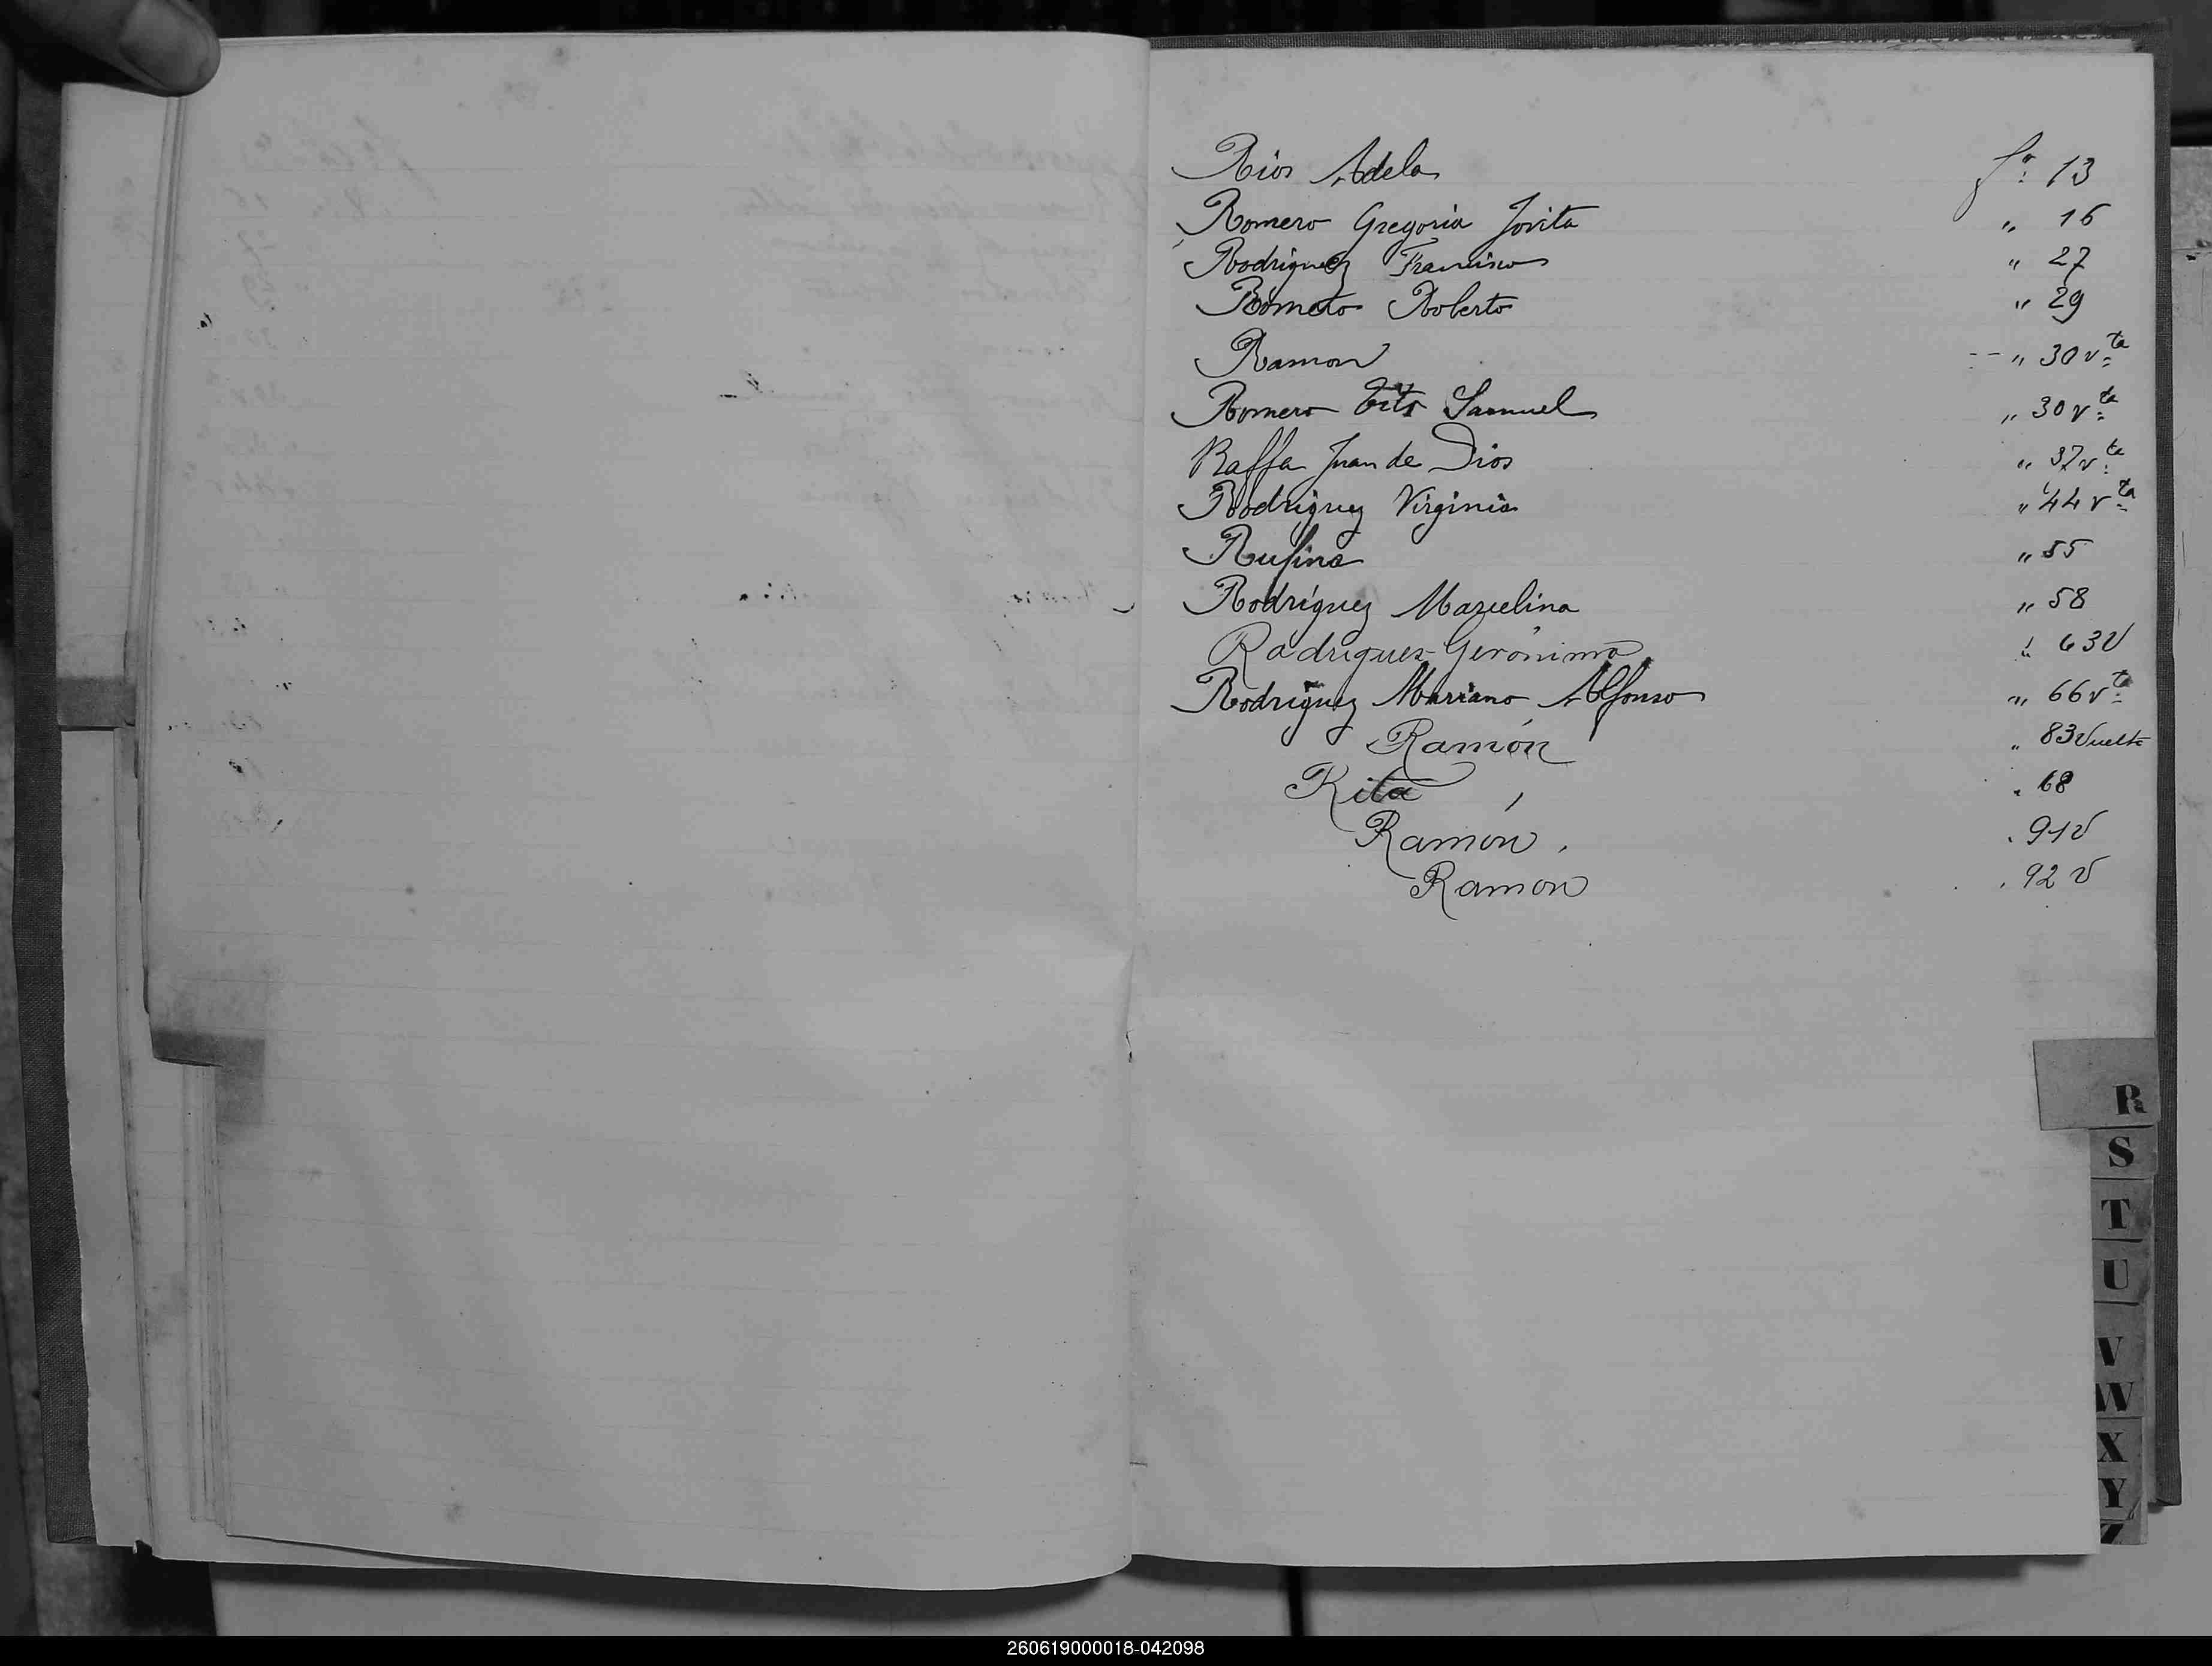 Rios Adela fº: 13
Romero Gregoria Jovita " 16
Rodriguez Francisco " 27
Romero Roberto " 29
Ramon -- " 30 vta
Romero Tito Samuel " 30 vta
Raffa Juan de Dios " 37 vta
Rodriguez Virginia " 44 vta
Rufina " 55
Rodriguez Marcelina " 58
Rodriguez Gerónimo " 63V
Rodriguez Mariano Alfonso " 66 vta
Ramón " 83 Vuelta
Rita " 68
Ramón . 91V
Ramon . 92 V
R
S
T
U
V
W
X
Y
Z
260619000018-042098